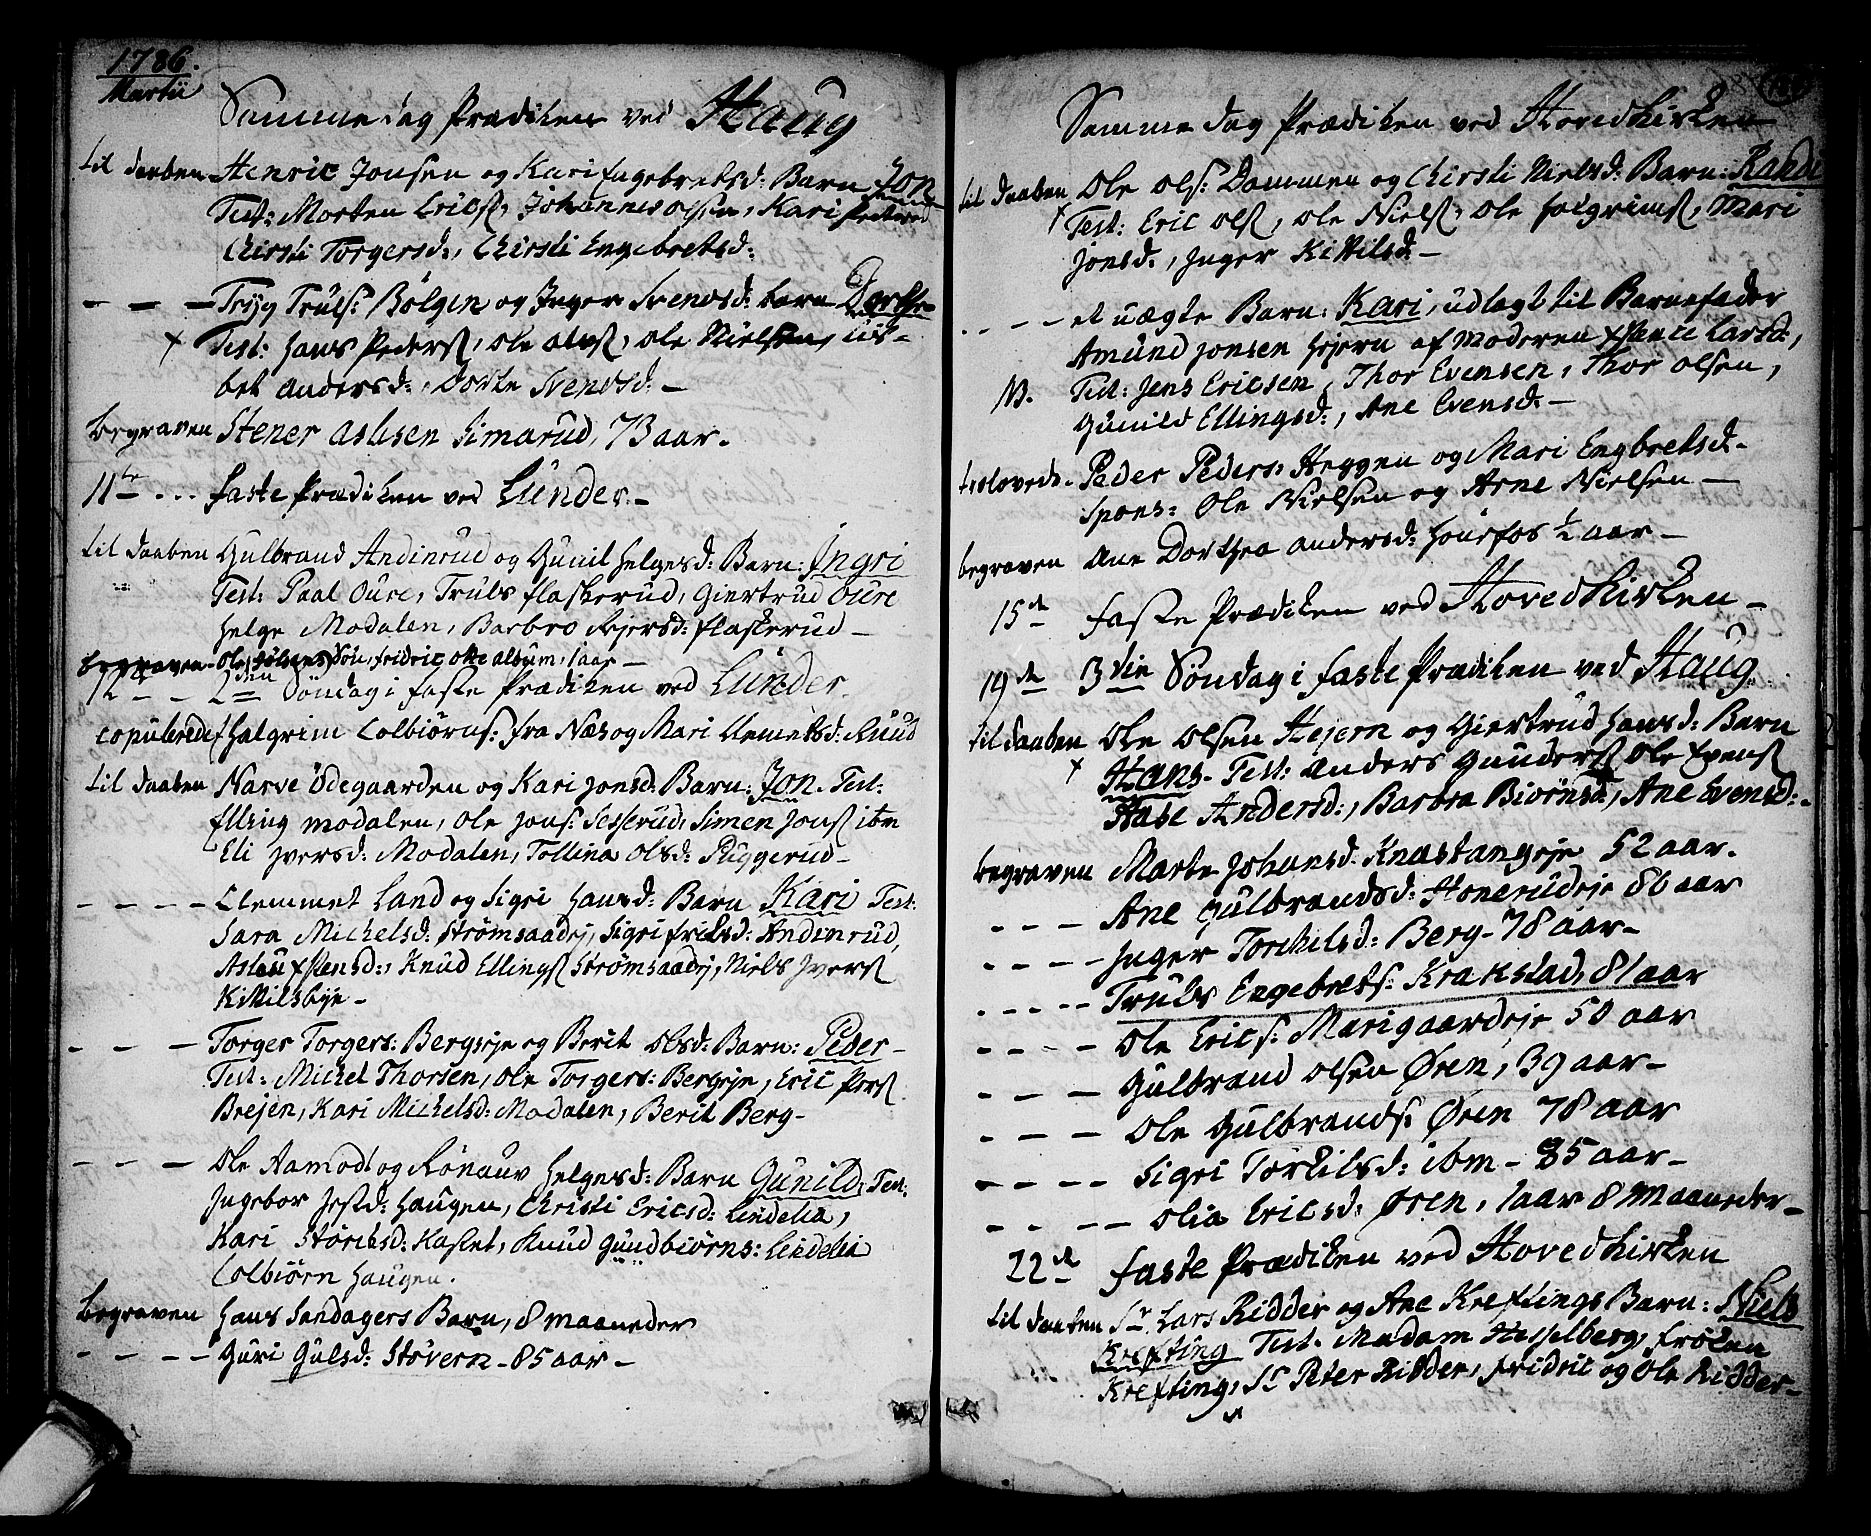 1786.
Martii
Samme dag Prædiken ved Haug
til daaben Henric Jonsen og Kari Engebretsd: Barn Jon
Test: Morten Ericsſ, Johannes olsen, Kari Pedersd
Chirsti Torgersd:, Chirsti Engebretsd:
– – – Tryg Truls: Bølgen og Inger Svendsd: barn Dorthe
x Test: Hans Pedersſ, ole olsſ, ole Nielsen, Lis-
bet andersd:, Dorte Svendsd: –
begraven Stener aslesen Simarud, 73 aar.
11te ... faste Prædiken ved Lünder. –
til daaben Gulbrand Andinrud og Gunil Helgesd: Barn: Ingri
Test: Paal Oure, Truls flaskerud, Giertrud Oure
Helge Modalen, Barbro Rejersd: flaskerud –
begraven Ole Søn, fridric otte album, 1 aar –
12te – – 2den Søndag i faste Prædiken ved Lünder.
copulerede Halgrim Colbiørns: fra Næs og Mari Clemetsd: Ruud
til daaben Narve Ødegaarden og Kari Jonsd: Barn: Jon. Test:
Elling modalen, Ole Jons: Sesserud, Simen Jonsſ ibm
Eli Iversd: Modalen, Tollina olsd: Puggerud –
– – – – Clemmet Land og Sigri Hansd: Barn Kari Test:
Sara Michelsd: Strømsaadej, Sigri fricsd: Andinrud,
Aslou Stensd:, Knud Ellingsſ Strømsaadej, Niels Iversſ
Kittilsbye –
– – – Torger Torgers: Bergseje og Berit olsd: Barn: Peder –
Test: Michel Thorsen, ole Torgers: Bergeje, Eric Persſ
Brejen, Kari Michelsd: Modalen, Berit Berg –
– – – Ole Aamodt og Rønauv Helgesd: Barn Gunild: Test:
Ingebor Jestd: Haugen, Christi Ericsd: Lindelia,
Kari Størchsd: Haslet, Knud Gundbiørns: Lindelia
Colbiørn Haugen.
begraven Hans Sandagers Barn, 8 maaneder
– – – – Guri Gulsd: Støvern – 85 aar –
Samme dag Prædiken ved Hovedkirken
til daaben Ole ols: Dammen og Chirsti Nielsd: Barn: Randi
x Test: Eric olsſ, ole Nielsſ, ole Halgrimsſ, Mari
Jonsd:, Inger Kittilsd: –
. – – – et uægte Barn: Kari, udlagt til Barnefader
Amund Jonsen Hejern af moderen Larsd:,
N. Test: Jens Ericsen, Thor Evensen, Thor olsen,
Gunild Ellingsd:, Ane Evensd: –
troloved: Peder Peders: Heggen og Mari Engbretsd: –
Spons: Ole Nielsen og Arne Nielsen –
begraven Ane Dorthea andersd: Hønefos ½ aar –
15de faste Prædiken ved Hovedkirken –
19de 3die Søndag i faste Prædiken ved Haug
til daaben Ole olsen Hejern og Giertrud Hansd: Barn
x Hans – Test: Anders Gundersſ, Ole Evensſ
Aase Andersd:, Barbra Biørnsd:, Ane Evensd: –
begraven Marte Johansd: Knastangeje 52 aar.
– – – Ane Gulbrandsd: Honerudeje 86 aar
– – – – Inger Torchilsd: Berg – 78 aar –
– – – – Truls Engebrets: Krakstad, 81 aar
– – – – Ole Erics: Mærigaardeje 50 aar
– – – Gulbrand olsen Øren, 39 aar –
– – – Ole Gulbrands: Øren 78 aar
– – – – Sigri Torkilsd: ibm – 85 aar –
– – – – Olia Ericsd: Øren, 1 aar 8 maaneder –
22de faste Prædiken ved Hovedkirken
til daaben Sr. Lars Ridder og Ane Kreftings Barn: Niels
Krefting Test: Madam Hesselberg, frøken
Krefting, Sr Peter Ridder, fridric og ole Ridder –